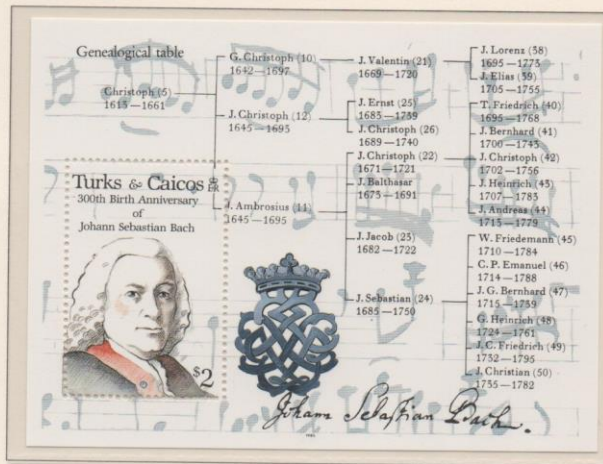 Genealogical table
Christoph (5)
1613—1661
G. Christoph (10)
1642—1697
J. Christoph (12)
1645—1693
J. Ambrosius (11)
1645—1695
J. Valentin (21)
1669—1720
J. Ernst (25)
1683—1739
J. Christoph (26)
1689—1740
J. Christoph (22)
1671—1721
J. Balthasar
1673—1691
J. Jacob (23)
1682—1722
J. Sebastian (24)
1685—1750
J. Lorenz (38)
1695—1773
J. Elias (39)
1705—1755
T. Friedrich (40)
1695—1768
J. Bernhard (41)
1700—1743
J. Christoph (42)
1702—1756
J. Heinrich (43)
1707—1783
J. Andreas (44)
1713—1779
W. Friedemann (45)
1710—1784
C. P. Emanuel (46)
1714—1788
J. G. Bernhard (47)
1715—1739
G. Heinrich (48)
1724—1761
J. C. Friedrich (49)
1732—1795
J. Christian (50)
1735—1782
Turks & Caicos
300th Birth Anniversary
of
Johann Sebastian Bach
$2
Johann Sebastian Bach.